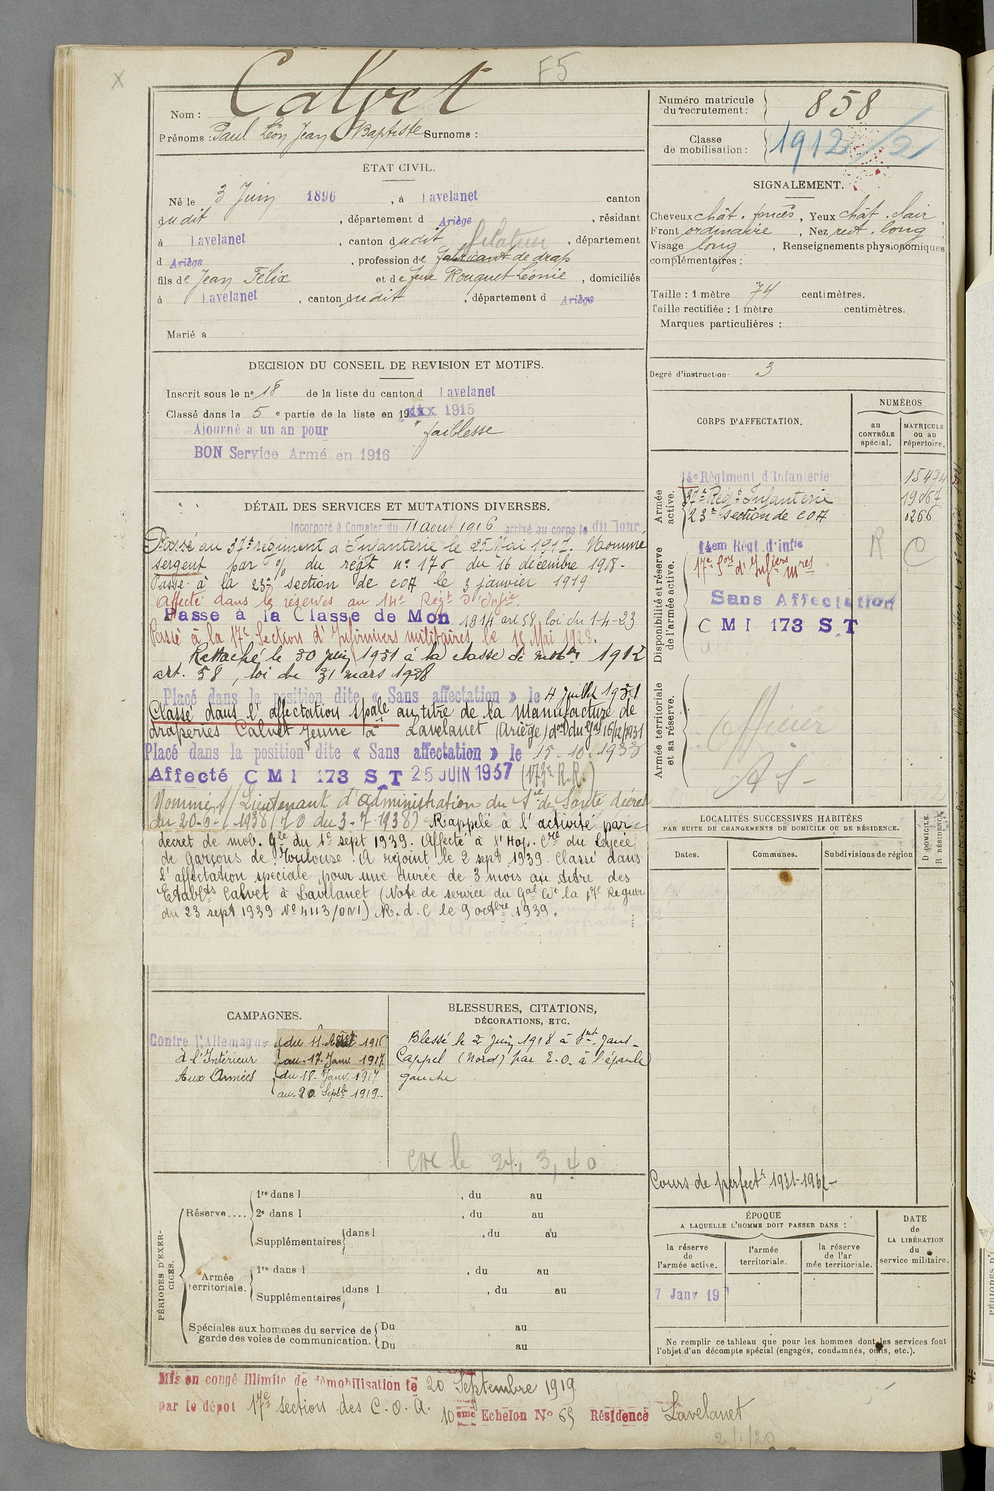 F5
Nom : Calvet
Prénoms : Paul Léon Jean Baptiste Surnoms :
Numéro matricule du recrutement : 858
Classe de mobilisation : 1912/2
ÉTAT CIVIL.
Né le 3 Juin 1896, à Lavelanet canton
dudit, département d Ariège, résidant
à Lavelanet, canton dudit, département
filateur
d Ariège, profession de fabricant de drap
fils de Jean Félix et de feue Rouquet Léonie, domiciliés
à Lavelanet, canton dudit, département d Ariège
Marié à
SIGNALEMENT.
Cheveux chât. foncés, Yeux chât. clair,
Front ordinaire, Nez rect. long,
Visage long, Renseignements physionomiques
complémentaires :
Taille : 1 mètre 74 centimètres.
Taille rectifiée : 1 mètre centimètres.
Marques particulières :
Degré d'instruction 3
DECISION DU CONSEIL DE REVISION ET MOTIFS.
Inscrit sous le n° 18 de la liste du canton d Lavelanet
Classé dans la 5e partie de la liste en 19xxx 1915
Ajourné a un an pour faiblesse
BON Service Armé en 1916
CORPS D'AFFECTATION.
NUMÉROS
au CONTRÔLE spécial.
MATRICULE ou au répertoire.
Armée active.
14e Régiment d'Infanterie 15474
37e Régt Infanterie 19067
23e Section de COA 1266
Disponibilité et réserve de l'armée active.
14em Régt d'Infie R C
17e Son d'Infiers Mres
Sans Affectation
C M I 173 S T
Armée territoriale et sa réserve.
Officier
A S -
DÉTAIL DES SERVICES ET MUTATIONS DIVERSES.
Incorporé à Compter du 11 aout 1916 arrivé au corps le dit jour
Passé au 37e régiment d'Infanterie le 25 Mai 1917. Nommé
sergent par O/ du régt n° 175 du 16 décembre 1918.
Passé à la 23e section de COA le 3 janvier 1919
Affecté dans les réserves au 14e Regt d'Infie
Passé à la Classe de Mon 1914 art 58 loi du 1-4-23
Passé à la 17e Section d'Infirmiers militaires le 15 Mai 1928.
Rattaché le 30 juin 1931 à la classe de mobon 1912
art. 58, loi du 31 mars 1928
Placé dans la position dite « Sans affectation » le 4 juillet 1931
Classé dans l'affectation spale au titre de la Manufacture de
draperies Calvet Jeune à Lavelanet (Ariège) don du Gal 16/12/1931
Placé dans la position dite « Sans affectation » le 15-10-1933
Affecté C M I 173 S T 25 JUIN 1937 (173e R.R.)
Nommé S/Lieutenant d'administration du Sce de Santé décret
du 20-6-1938 (JO du 3-7-1938) Rappelé à l'activité par
décret de mob. Gle du 1er sept 1939. Affecté à l'Hop. Cre du Lycée
de Garçons de Toulouse. A rejoint le 2 sept 1939 Classé dans
l'affectation spéciale pour une durée de 3 mois au titre des
Etablts Calvet à Lavelanet (Note de service du Gal Ct la 17e Region
du 23 sept 1939 N° 4113/ON1) R.d.C le 9 octbre 1939.
LOCALITÉS SUCCESSIVES HABITÉES
PAR SUITE DE CHANGEMENTS DE DOMICILE OU DE RÉSIDENCE.
Dates. Communes. Subdivisions de région
D DOMICILE. R RÉSIDENCE.
CAMPAGNES.
Contre l'Allemagne
À l'Intérieur du 11 Août 1916
au 17 Janv 1917
Aux Armées du 18 Janv 1917
au 20 Septb 1919.
BLESSURES, CITATIONS,
DÉCORATIONS, ETC.
Blessé le 2 Juin 1918 à St Jans-
Cappel (Nord) par E.O. à l'épaule
gauche
le 24, 3, 40
Cours de perfectt 1931-1932-
PÉRIODES D'EXERCICES.
Réserve.... 1re dans l , du au
2e dans l , du au
Supplémentaires dans l , du au
Armée territoriale. 1re dans l , du au
Supplémentaires dans l , du au
Spéciales aux hommes du service de garde des voies de communication. Du au
Du au
ÉPOQUE
A LAQUELLE L'HOMME DOIT PASSER DANS :
la réserve de l'armée active.
l'armée territoriale.
la réserve de l'armée territoriale.
DATE de LA LIBÉRATION du service militaire.
7 Janv 19
Ne remplir ce tableau que pour les hommes dont les services font
l'objet d'un décompte spécial (engagés, condamnés, omis, etc.).
Mis en congé illimité de démobilisation le 20 Septembre 1919
par le dépôt 17e section des C.O.A. 10eme Echelon N° 65 Résidence Lavelanet